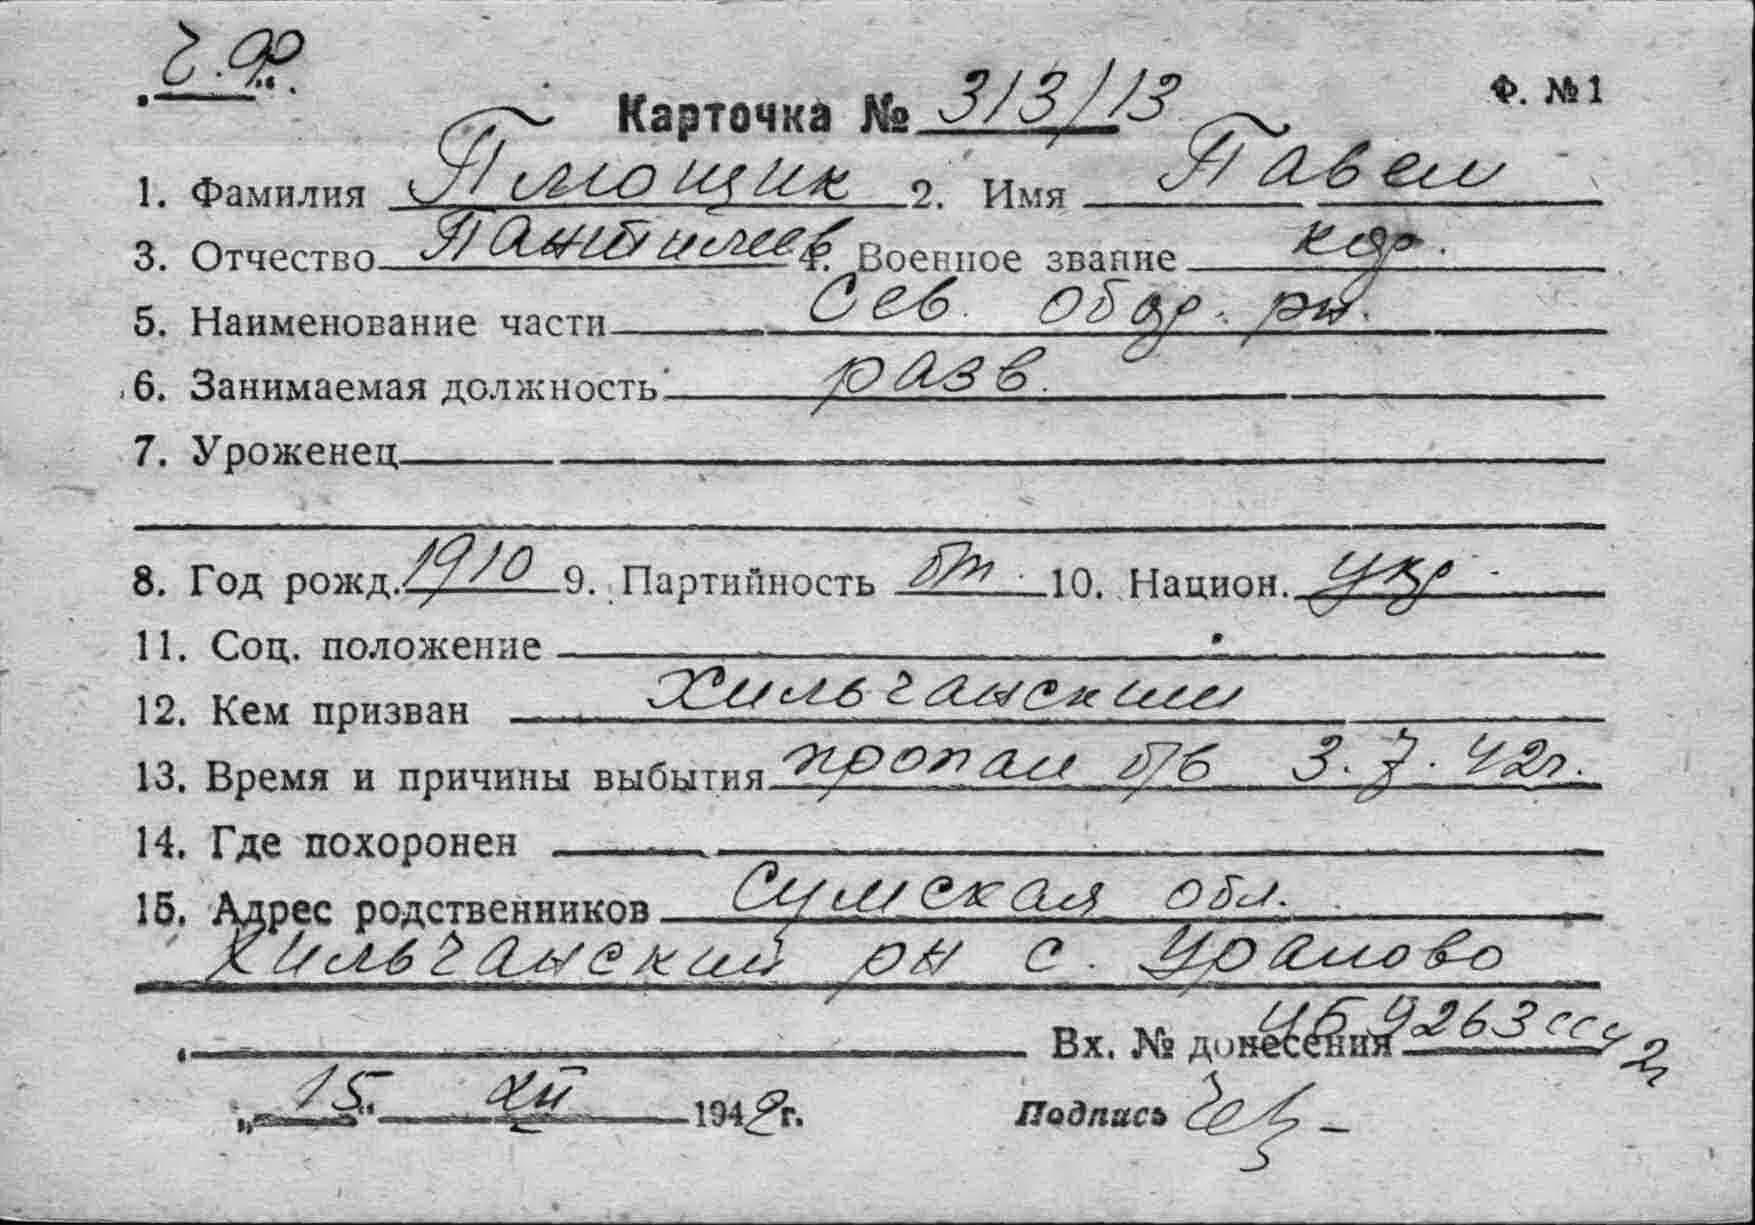 Ч.Ф.
Карточка № 313/13 Ф. №1
1. Фамилия Плющик 2. Имя Павел
3. Отчество Пантилеев 4. Военное звание кр.
5. Наименование части Сев. об. рн.
6. Занимаемая должность разв.
7. Уроженец
8. Год рожд. 1910 9. Партийность бп. 10. Национ. укр.
11. Соц. положение
12. Кем призван Хильчанским
13. Время и причины выбытия пропал б/в 3.7.42г.
14. Где похоронен
15. Адрес родственников Сумская обл.
Хильчанский рн с. Уралово
Вх. № донесения 9263
„15“ XII 1942г. Подпись